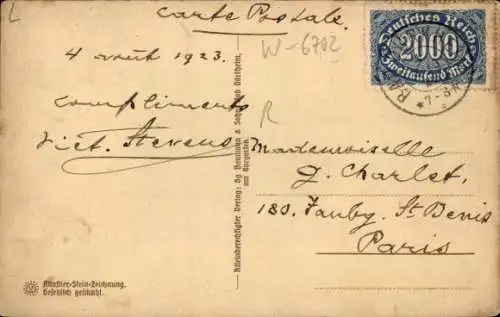 L
Carte Postale.
W-6702
4 août 1923.
R
Compliments
Vict. Stevens
Deutsches Reich
2000
Zweitausend Mark
*7-8
Mademoiselle
J. Charlet,
180. Faubg. St Denis
Paris
Alleinberechtigter Verlag:
am Kurgarten.
Künstler-Stein-Zeichnung.
Gesetzlich geschützt.